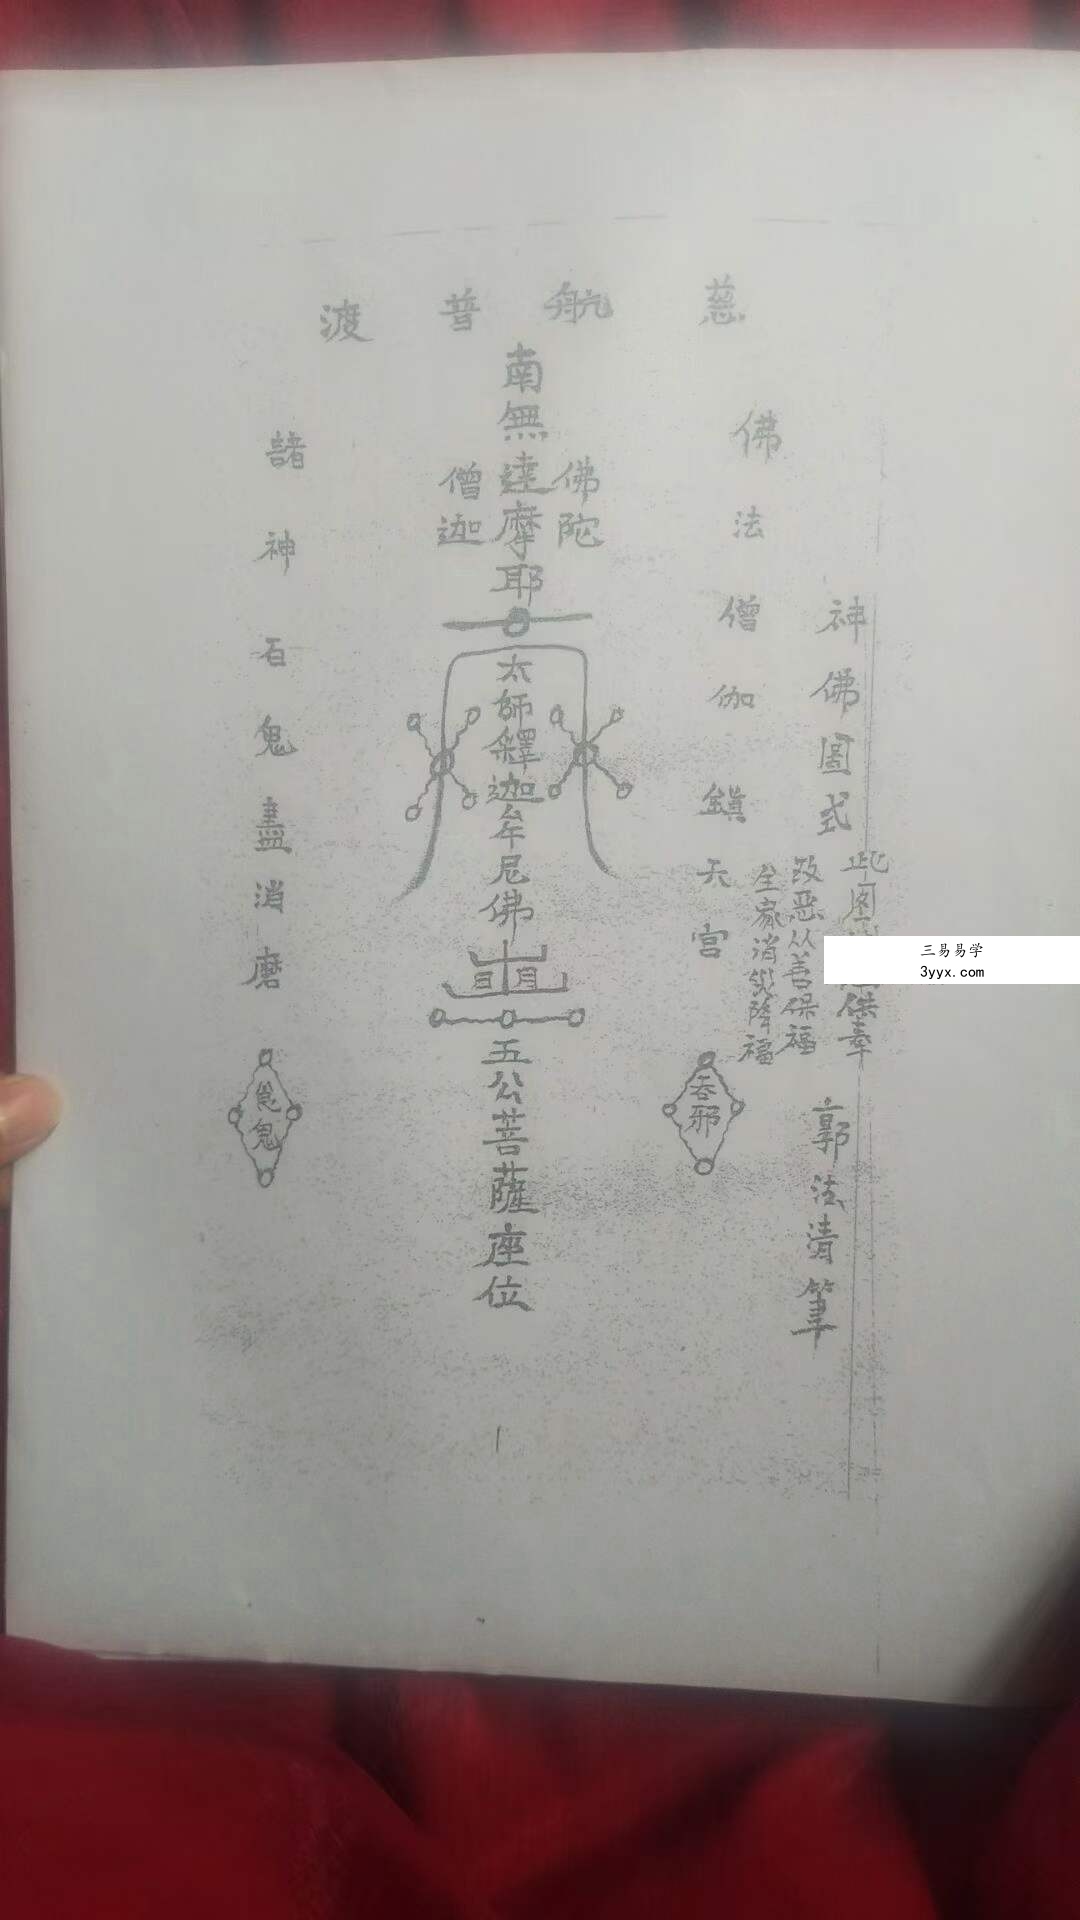 慈航普渡
神佛圖式
此图
供奉
改恶从善保福
生家消災降福
郭法清筆
佛法僧伽鎮天宫
吞邪
佛陀
南無達摩耶
僧迦
太師釋迦牟尼佛
日月
五公菩薩座位
諸神百鬼盡消磨
鬼
三易易学
3yyx.com